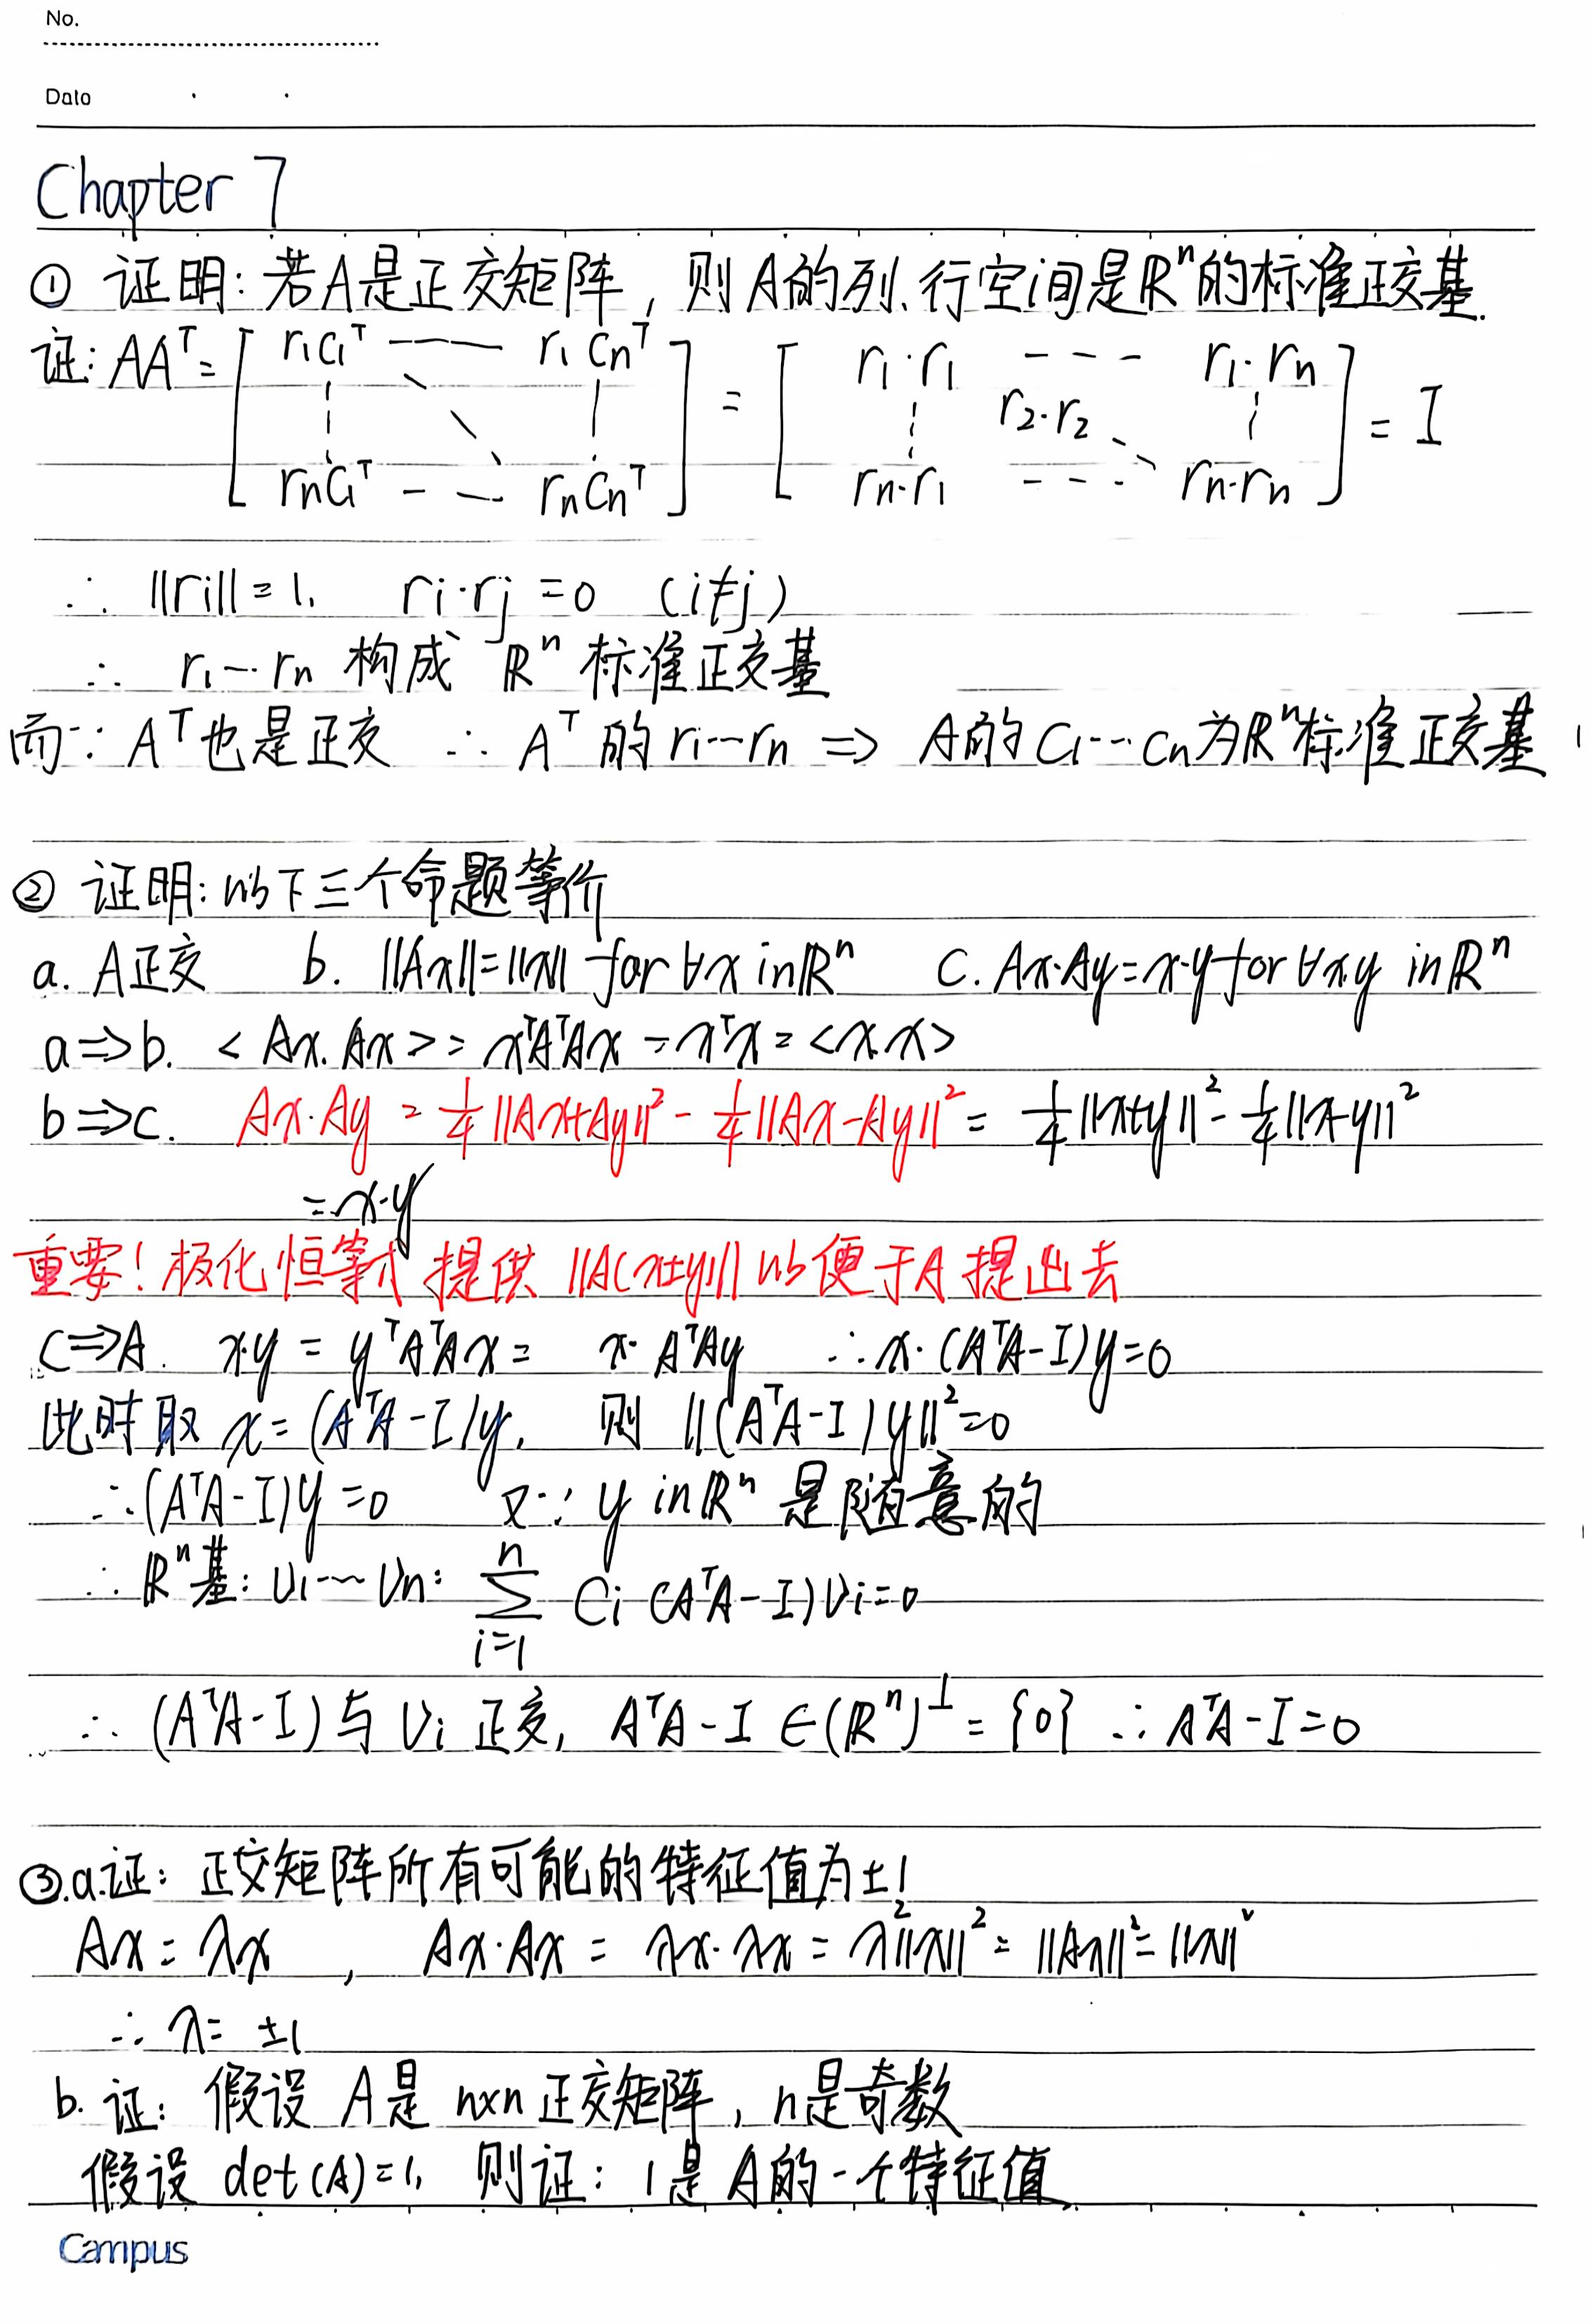 No.
Date
Chapter 7
① 证明: 若A是正交矩阵, 则A的列、行空间是ℝⁿ的标准正交基.
证: AAᵀ = [ r₁c₁ᵀ ---- r₁cₙᵀ ⋮ ⋱ ⋮ rₙc₁ᵀ --- rₙcₙᵀ ] = [ r₁·r₁ --- r₁·rₙ ⋮ r₂·r₂ ⋱ ⋮ rₙ·r₁ --- rₙ·rₙ ] = I
∴ ||rᵢ|| = 1, rᵢ·rⱼ = 0 (i≠j)
∴ r₁…rₙ 构成 ℝⁿ 标准正交基
而∵ Aᵀ也是正交 ∴ Aᵀ的 r₁…rₙ ⇒ A的 c₁…cₙ为ℝⁿ标准正交基
② 证明: 以下三个命题等价
a. A正交 b. ||Ax||=||x|| for ∀x in ℝⁿ C. Ax·Ay=x·y for ∀x.y in ℝⁿ
a⇒b. <Ax. Ax> = xᵀAᵀAx = xᵀx = <x.x>
b⇒c. Ax·Ay = ¼||Ax+Ay||² - ¼||Ax-Ay||² = ¼||x+y||² - ¼||x-y||²
= x·y
重要! 极化恒等式 提供 ||A(x±y)|| 以便于A提出去
C⇒A. x·y = yᵀAᵀAx = x·AᵀAy ∴ x·(AᵀA-I)y=0
此时取 x=(AᵀA-I)y, 则 ||(AᵀA-I)y||²=0
∴ (AᵀA-I)y=0 又∵ y in ℝⁿ 是随意的
∴ ℝⁿ基: v₁…vₙ: ∑ⁿᵢ₌₁ Cᵢ (AᵀA-I)vᵢ=0
∴ (AᵀA-I)与vᵢ正交, AᵀA-I ∈(ℝⁿ)^⊥ = {0} ∴ AᵀA-I=0
③.a.证: 正交矩阵所有可能的特征值为±1
Ax = λx , Ax·Ax = λx·λx = λ²||x||² = ||Ax||² = ||x||²
∴ λ= ±1
b. 证: 假设 A是 n×n 正交矩阵, n是奇数
假设 det(A)=1, 则证: 1是A的一个特征值
Campus